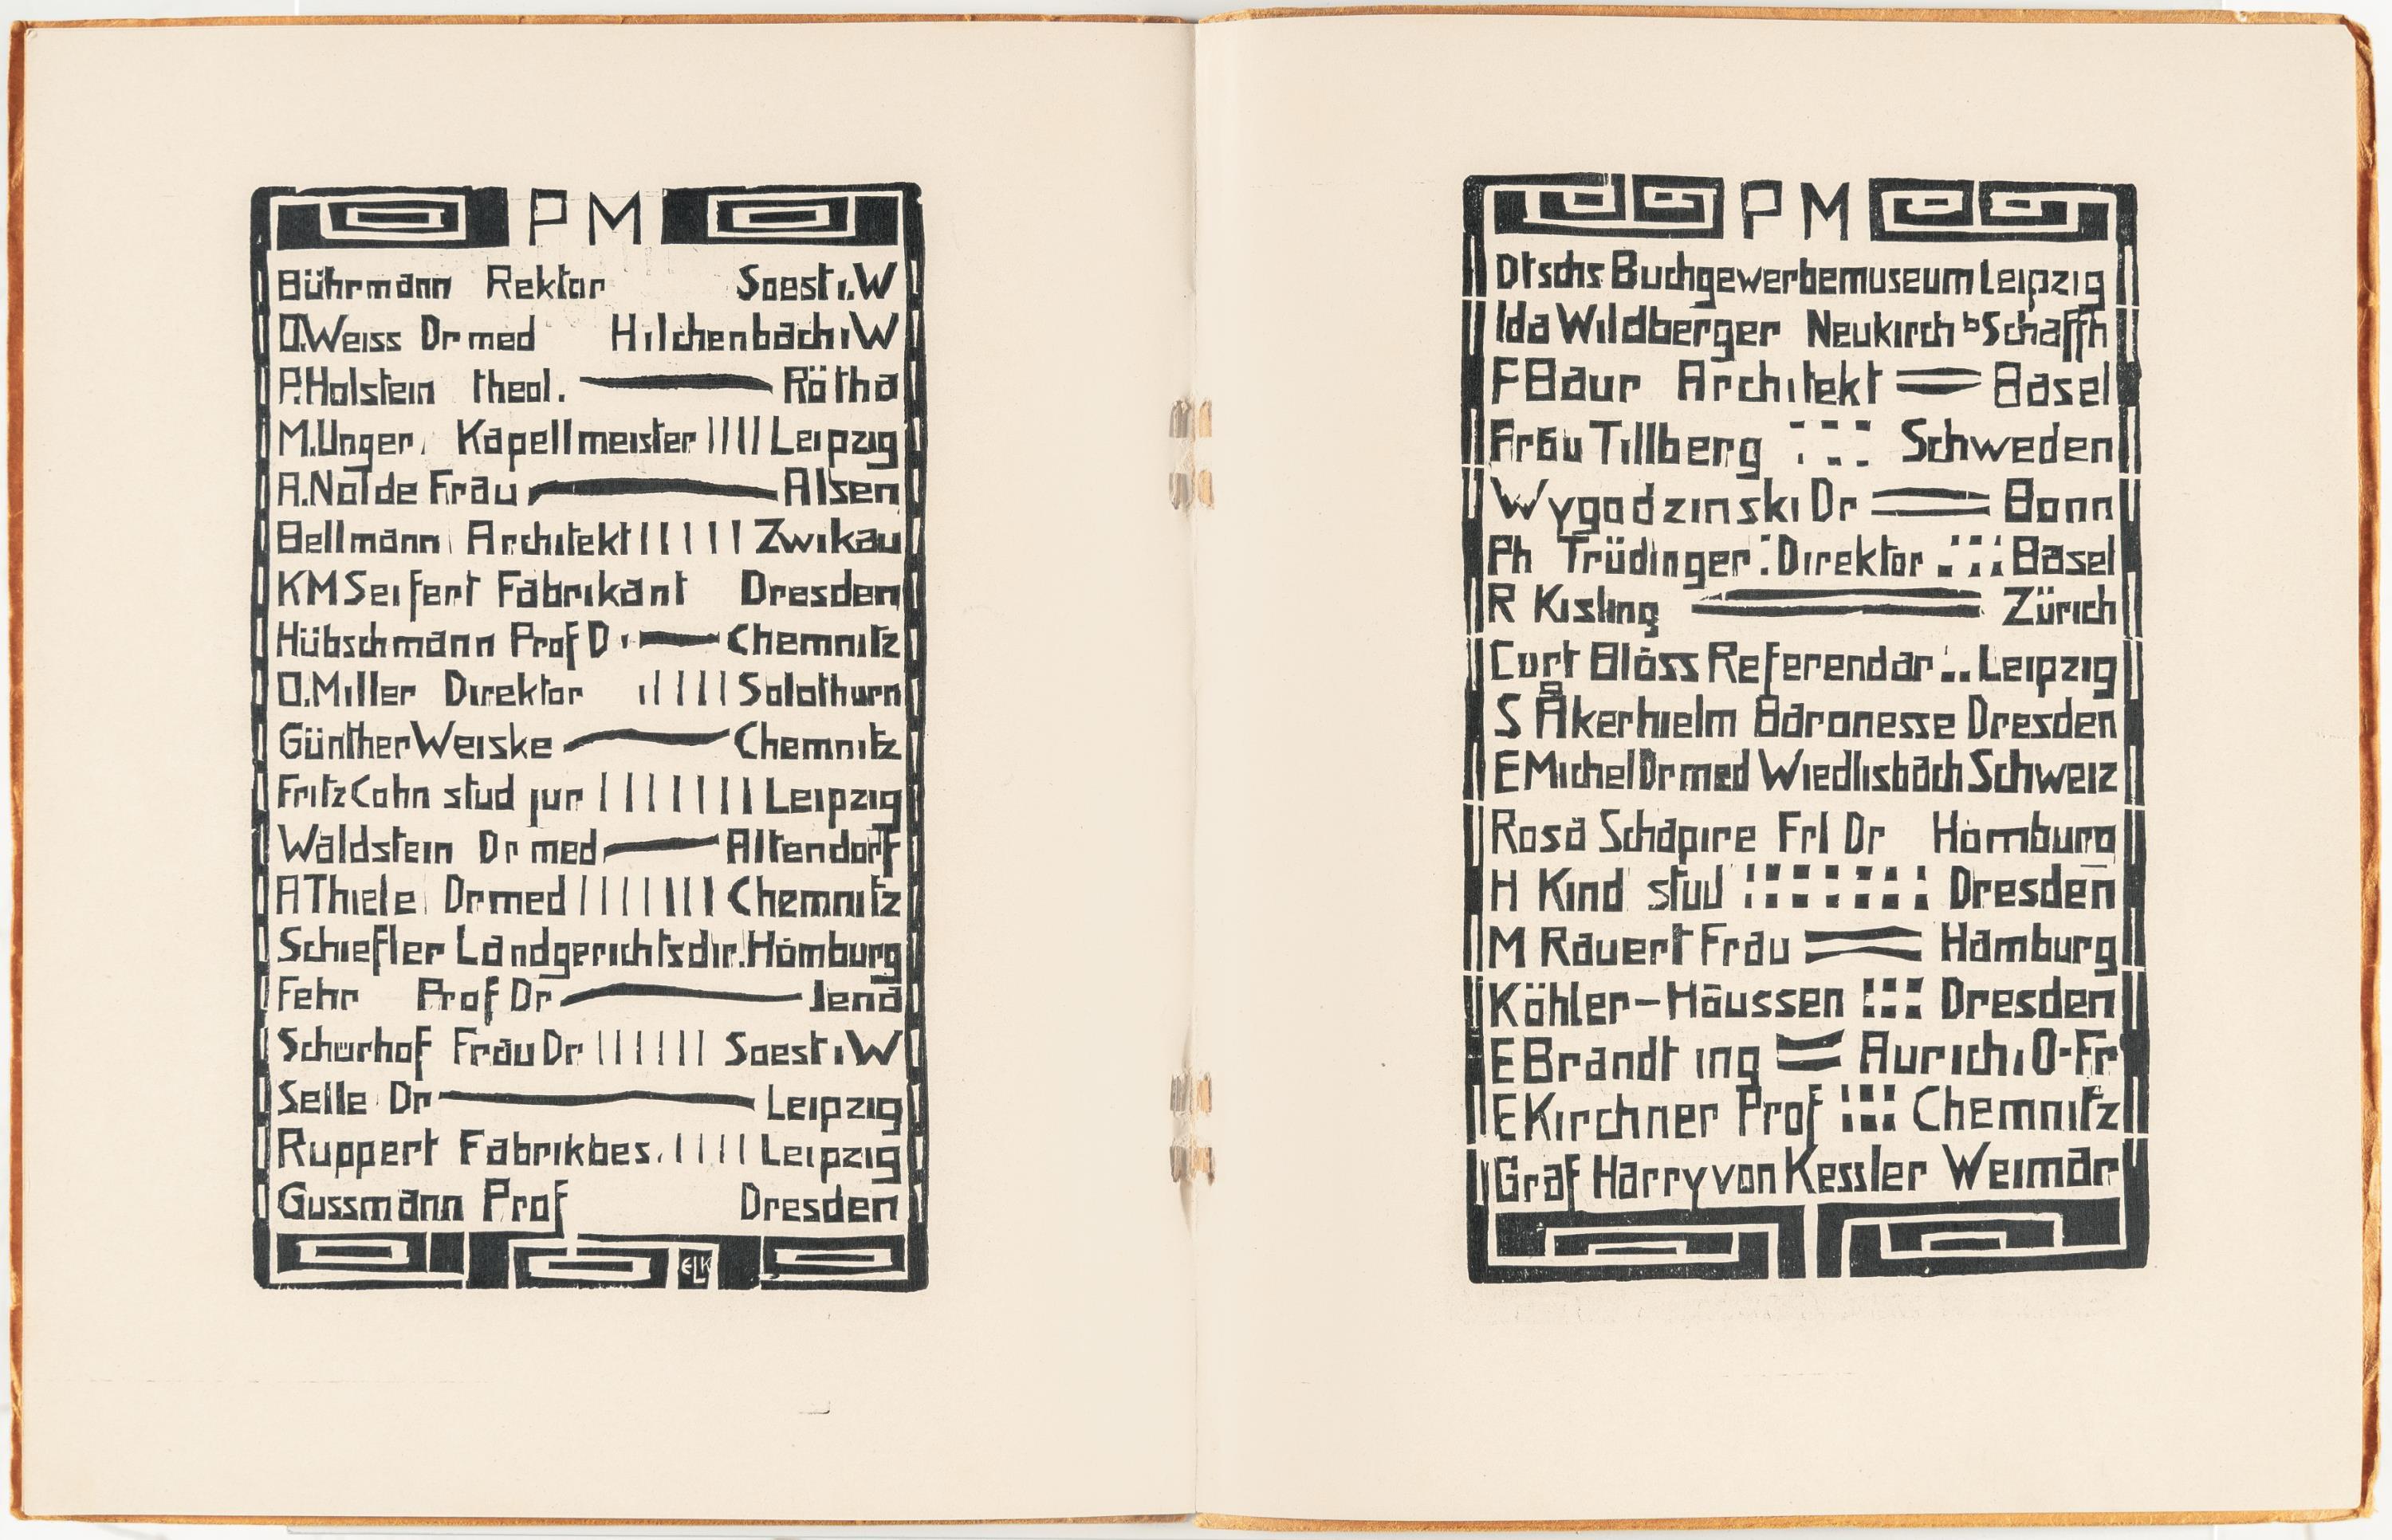 PM
Bührmann Rektor Soest i.W
O.Weiss Dr med Hilchenbach i W
P.Holstein theol. Rötha
M.Unger Kapellmeister Leipzig
A.Nolde Frau Alsen
Bellmann Architekt Zwikau
KM Seifert Fabrikant Dresden
Hübschmann Prof D Chemnitz
O.Miller Direktor Solothurn
Günther Weiske Chemnitz
Fritz Cohn stud jur Leipzig
Waldstein Dr med Altendorf
A Thiele Dr med Chemnitz
Schiefler Landgerichtsdir. Hamburg
Fehr Prof Dr Jena
Schürhof Frau Dr Soest i W
Selle Dr Leipzig
Ruppert Fabrikbes. Leipzig
Gussmann Prof Dresden
ELK
PM
Dtschs Buchgewerbemuseum Leipzig
Ida Wildberger Neukirch b Schaffh
F Baur Architekt Basel
Frau Tillberg Schweden
Wygodzinski Dr Bonn
Ph Trüdinger Direktor Basel
R Kisling Zürich
Curt Blöss Referendar Leipzig
S Åkerhielm Baronesse Dresden
E Michel Dr med Wiedlisbach Schweiz
Rosa Schapire Frl Dr Hamburg
H Kind stud Dresden
M Rauert Frau Hamburg
Köhler-Häussen Dresden
E Brandt ing Aurich i O-Fr
E Kirchner Prof Chemnitz
Graf Harry von Kessler Weimar